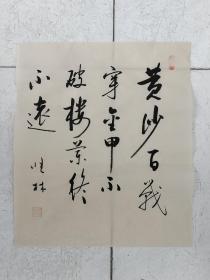 黄沙百战
穿金甲不
破楼兰终
不还